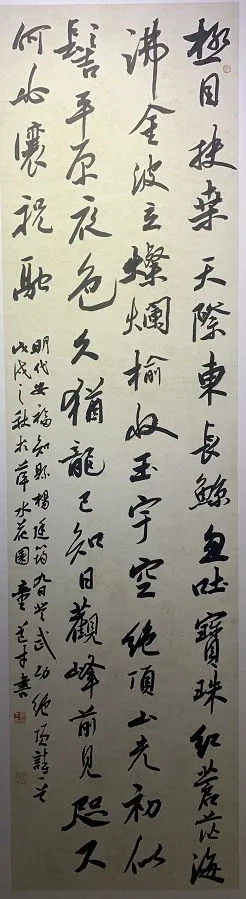 極目扶桑天際東長鯨忽吐寶珠紅蒼茫海
沸金波立燦爛榆收玉宇空絕頂山光初似
髻平原夜色久猶龍已知日觀峰前見咫尺
何必讓祝融
明代安福知縣楊廷筠九日登武功絕頂詩一首
戊戌之秋於萍水花園童才書